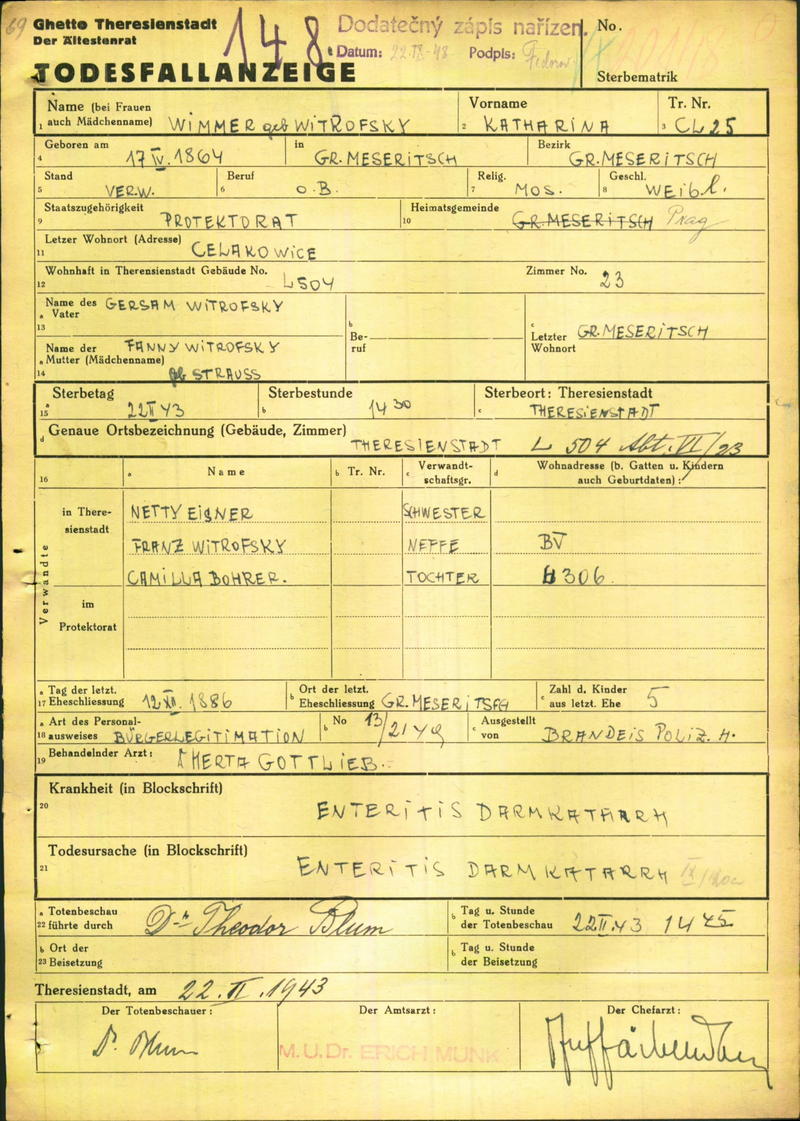 69
Ghetto Theresienstadt
Der Ältestenrat
148
Dodatečný zápis nařízen.
Datum: 22-IX-48 Podpis:
No.
TODESFALLANZEIGE
Sterbematrik
Name (bei Frauen
1 auch Mädchenname) WIMMER geb WITROFSKY
Vorname
2 KATHARINA
Tr. Nr.
3 CL 25
Geboren am
4 17 IV. 1864
in
GR. MESERITSCH
Bezirk
GR. MESERITSCH
Stand
5 VERW.
Beruf
6 O.B.
Relig.
7 MOS.
Geschl.
8 WEIBL.
Staatszugehörigkeit
9 PROTEKTORAT
Heimatsgemeinde
10 GR. MESERITSCH Prag
Letzer Wohnort (Adresse)
11 CELAKOWICE
Wohnhaft in Therensienstadt Gebäude No.
12 L504
Zimmer No. 23
Name des GERSAM WITROFSKY
a Vater
13
b
Be-
ruf
c
Letzter GR. MESERITSCH
Wohnort
Name der FANNY WITROFSKY
a Mutter (Mädchenname)
14 geb STRAUSS
Sterbetag
15 a 22 II 43
Sterbestunde
b 14 30
Sterbeort: Theresienstadt
c THERESIENSTADT
d Genaue Ortsbezeichnung (Gebäude, Zimmer) THERESIENSTADT L 504 Abt. VI/23
16 a Name
b Tr. Nr.
c Verwandt-
schaftsgr.
d Wohnadresse (b. Gatten u. Kindern
auch Geburtdaten) :
Verwandte
in There-
sienstadt
NETTY EISNER SCHWESTER
FRANZ WITROFSKY NEFFE BV
CAMILLA BOHRER. TOCHTER 306.
im
Protektorat
a Tag der letzt.
17 Eheschliessung 12 XII. 1886
b Ort der letzt.
Eheschliessung GR. MESERITSCH
c Zahl d. Kinder
aus letzt. Ehe 5
a Art des Personal-
18 ausweises BÜRGERLEGITIMATION
b No 13/2149
c Ausgestellt
von BRANDEIS POLIZ. H.
19 Behandelnder Arzt: HERTA GOTTLIEB.
Krankheit (in Blockschrift)
20 ENTERITIS DARMKATARRH
Todesursache (in Blockschrift)
21 ENTERITIS DARMKATARRH
a Totenbeschau
22 führte durch Dr. Theodor Blum
b Tag u. Stunde
der Totenbeschau 22 II. 43 14 45
b Ort der
23 Beisetzung
b Tag u. Stunde
der Beisetzung
Theresienstadt, am 22. II. 1943
Der Totenbeschauer :
Dr. Blum
Der Amtsarzt :
M.U.Dr. ERICH MUNK
Der Chefarzt :